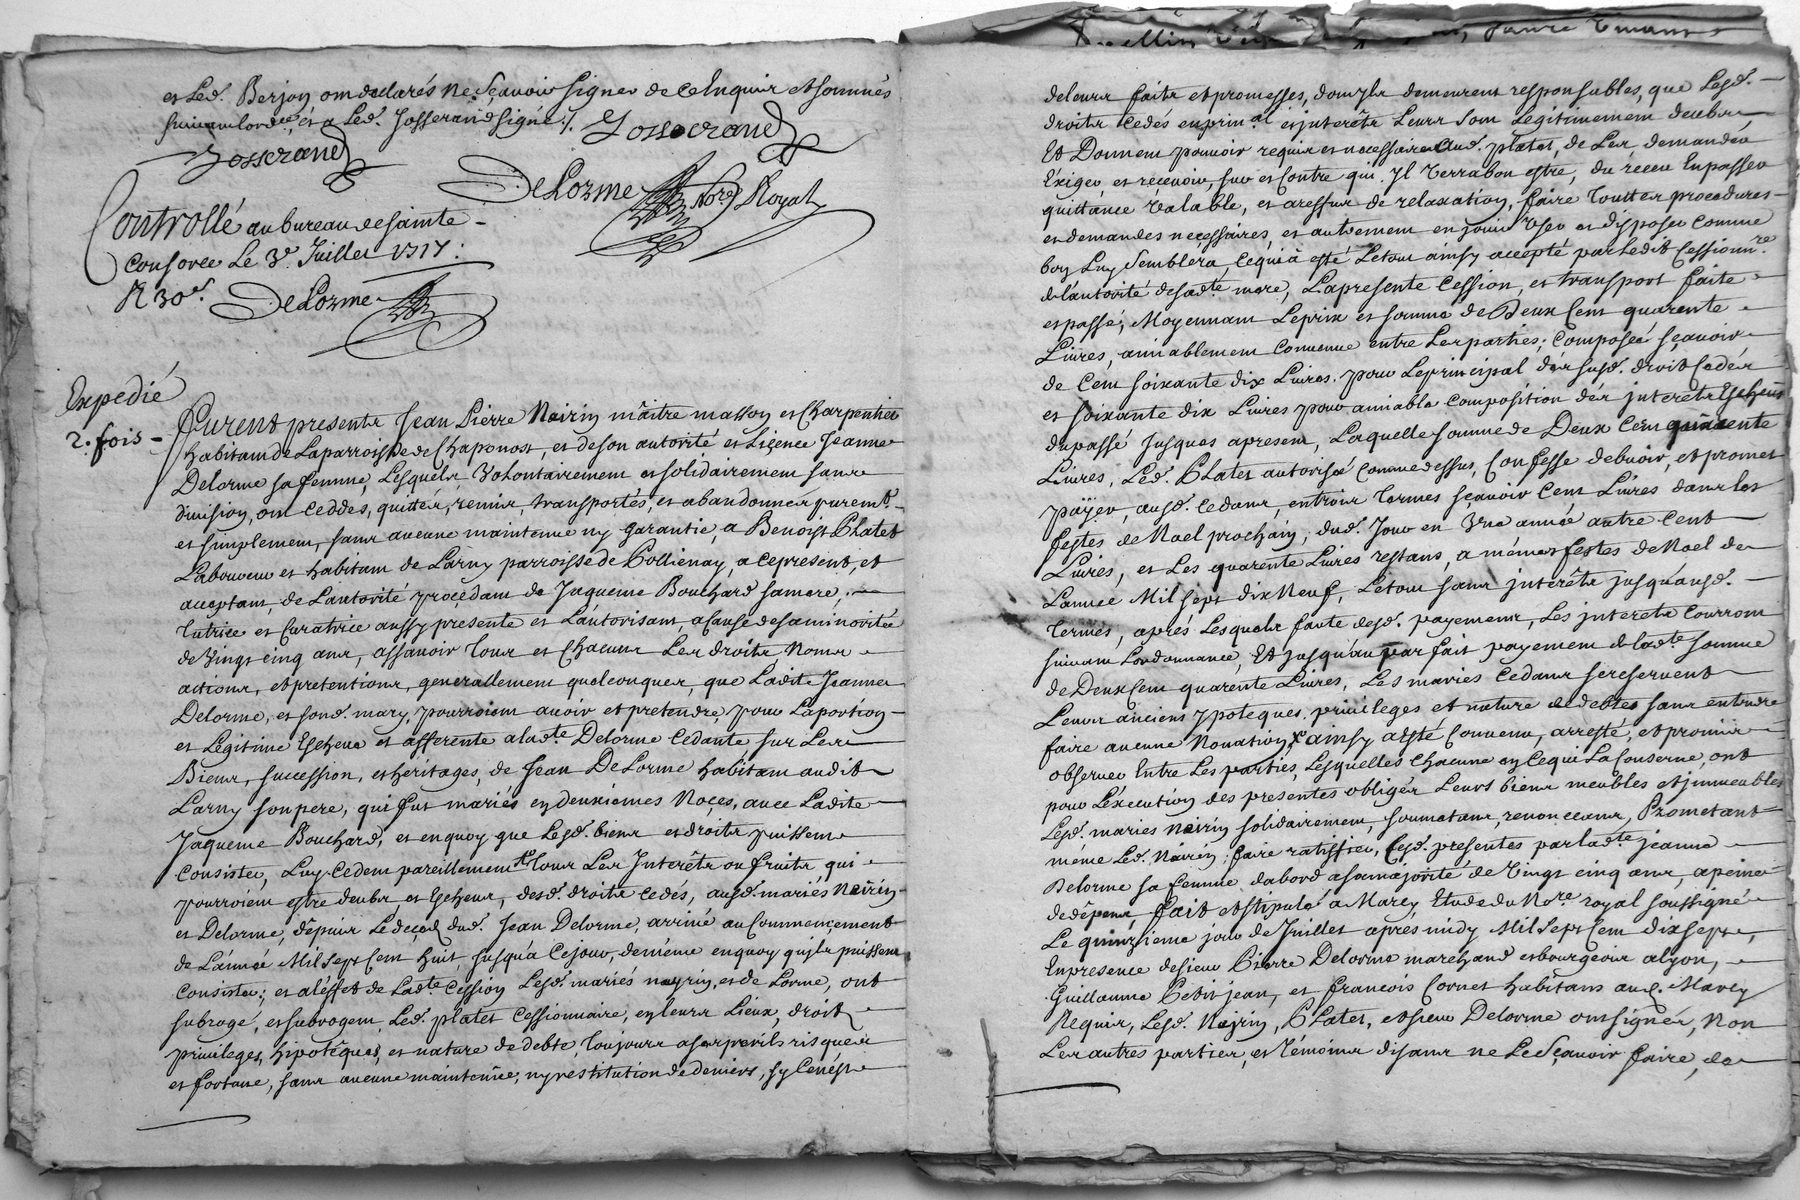 et Led. Berjon ont declarés ne sçavoir signer de ce enquis et sommés
suivant lordce, et a Led. Josserand signé ./. Josserand
Josserand
DeLorme Nore Royal
Controllé au bureau de sainte
Consorce Le 3e. Juillet 1717.
R 30s. DeLorme
Expedié
2. fois
Furent presents Jean Pierre Noirin mâitre masson et Charpentier
habitant de La parroisse de Chaponost, et de son autorité et Liçence Jeanne
Delorme sa femme, Lesquels volontairement et solidairement sans
division, ont ceddés, quittés, remis, transportés, et abandonnés puremt.
et simplement, sans aucune maintenue ny garantie, a Benoist Platet
Laboureur et habitant de Larny parroisse de Pollienay, a ce present, et
acceptant, de Lautorité procedant de Jaqueme Bouchard sa mere,
tutrice et Curatrice aussy presente et Lautorisant, a cause de sa minorité
de vingt cinq ans, assavoir tous et Chacuns Les droits noms
actions, et pretentions, generallement quelconques, que Ladite Jeanne
Delorme, et sond. mary, pourroient avoir et pretendre, pour La portion
et Legitime Escheue et afferente a ladte. Delorme Cedante sur Les
Biens, succession, et heritages, de Jean DeLorme habitant audit
Larny son pere, qui fut mariés en deuxiemes Noçes, avec Ladite
Jaqueme Bouchard, et en quoy que Lesd. biens et droits puissent
Consister, Luy Cedent pareillement tous Les Interêts ou fruits qui
pourroient estre deubs et Escheus, desd. droits cedés, ausd. mariés Noirin
et Delorme, dépuis Le deçed dud. Jean Delorme, arrivé au Commencement
de Lannée Mil sept Cent huit, jusqu'a Ce jour, de méme en quoy quils puissent
Consister; et a Léffet de Ladte Cession Lesd. mariés noyrin, et de Lorme, ont
subrogé, et subrogent, Led. platet Cessionnaire, en leurs Lieux, droit
privileges, hipotêques, et nature de debte, toujours a ses perils risques
et fortune, sans aucune maintenüe, ny restitution de deniers, sy Cénést
de leurs faits et promesses, dont ils demeurent responsables, que Lesd.
droits Cedés en prinal. et interêts Leurs sont Legitimement deubs
Et Donnent pouvoir requis et necessaire Aud. platet, de Les demander
Exiger et recevoir, sur et Contre qui Il verra bon estre, du receu En passer
quittance valable, et a reffus de relaxation, faire toutes procedures
et demandes necessaires, et autrement en jouir User et disposer comme
bon Luy semblera, Ce qui à esté Letout ainsy accepté par Ledit Cessionre.
de Lautorité de sadte. mere, La presente Cession, et transport faite
et passé, Moyennant Le prix et somme de Deux Cent quarente
Livres, amiablement Convenue entre Les parties; Composée sçavoir
de Cent soixante dix Livres, pour Le principal des susd. droit Cedés
et soixante dix Livres pour amiable composition des interets Escheus
du passé Jusques a present, Laquelle somme de Deux Cent quarente
Livres, Led. Platet autorisé Comme dessus, Confesse debvoir, et promet
payer, ausd. Cedans, en trois termes sçavoir Cent Livres dans les
festes de Noel prochain, dud. Jour en Une année autre Cent
Livres, et Les quarente Livres restans, a mémes festes de Noel de
Lannée Mil sept dix Neuf, Letout sans interêts jusqu'ausd.
termes, aprés Lesquels faute desd. payemens, Les interets Courront
suivant Lordonnance, Et jusqu'au parfait payement de Ladte somme
de Deux Cent quarente Livres, Les mariés Cedans se reservent
Leurs anciens ypoteques, privileges et nature de debtes sans entendre
faire aucune Novation, ainsy a esté Convenu, arresté, et promis
observer Entre Les parties, Lesquelles Chacune en Ce qui La Conserne, ont
pour Léxecution des presentes obligés Leurs biens meubles et immeubles
Lesd. mariés noirin solidairement, soumetans, renonceans, Prometant
méme Led. Noirin: faire ratiffier, Lesd. presentes par ladte. jeanne
Delorme sa femme dabord a sa majorité de Vingt cinq ans, a peine
de dépens, fait et stipulé a Marcy Etude du Nore royal soussigné
Le quinzieme jour de Juillet aprés midy Mil sept Cent dix sept,
En presence de sieur Pierre Delorme marchand et bourgeois a lyon,
Guillaume Petit jean, et francois Cornet habitans aud. Marcy
Requis, Lesd. Noirin, Platet, et sieur Delorme ont signés, Non
Les autres parties, et témoins disans ne Le Sçavoir faire, de